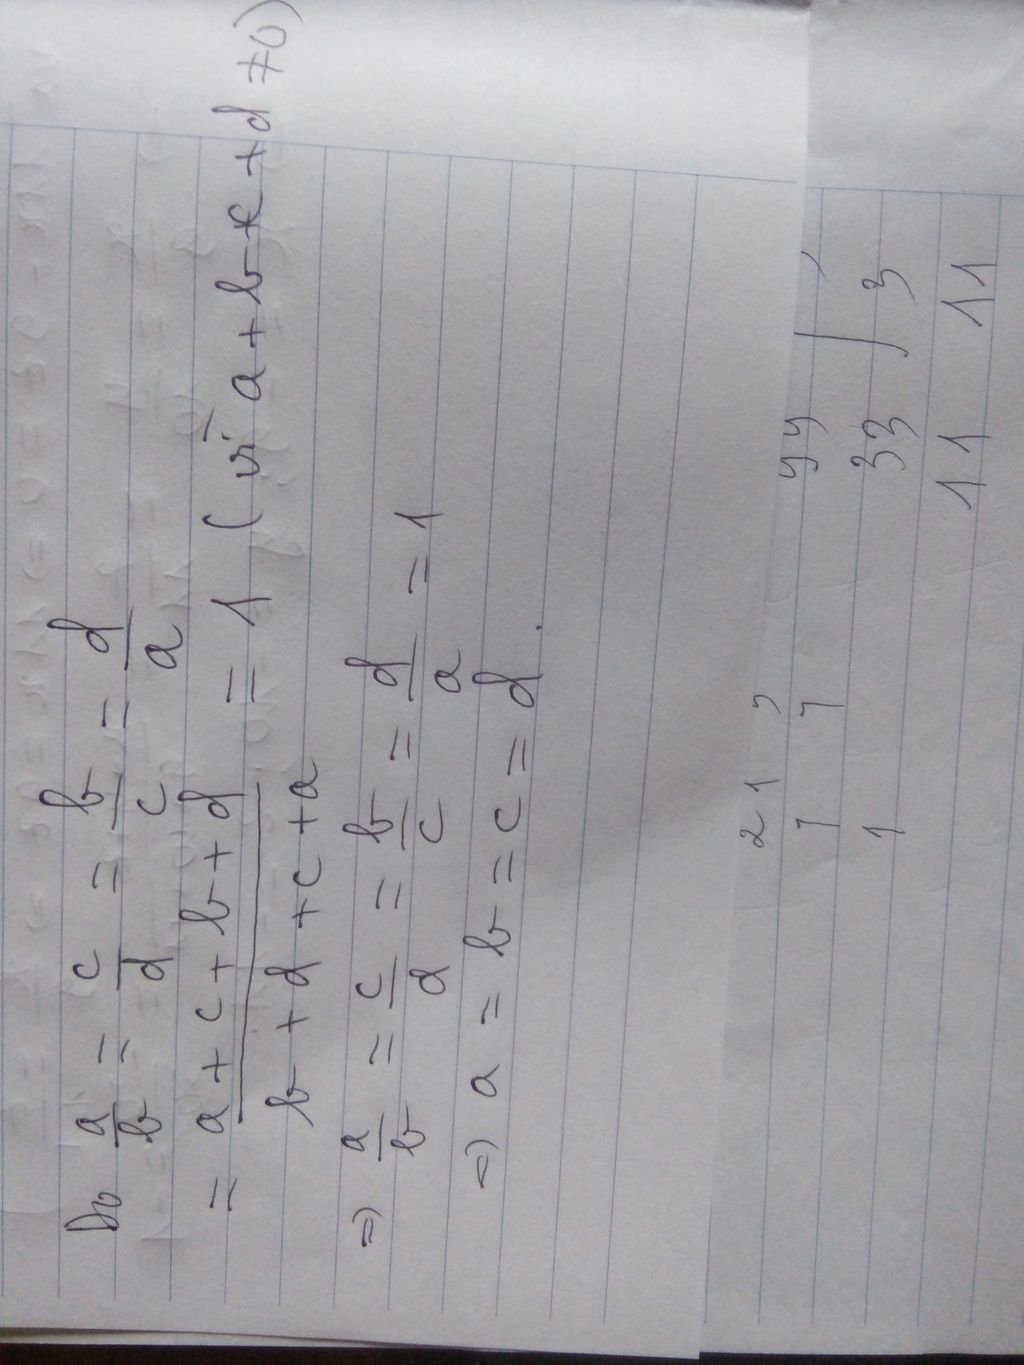 Do a/b = c/d = b/c = d/a
= a+c+b+d / b+d+c+a = 1 (vì a+b+c+d ≠0)
=) a/b = c/d = b/c = d/a = 1
=) a = b = c = d.
2 1 2
1 1
yy
1
33
3
11 11